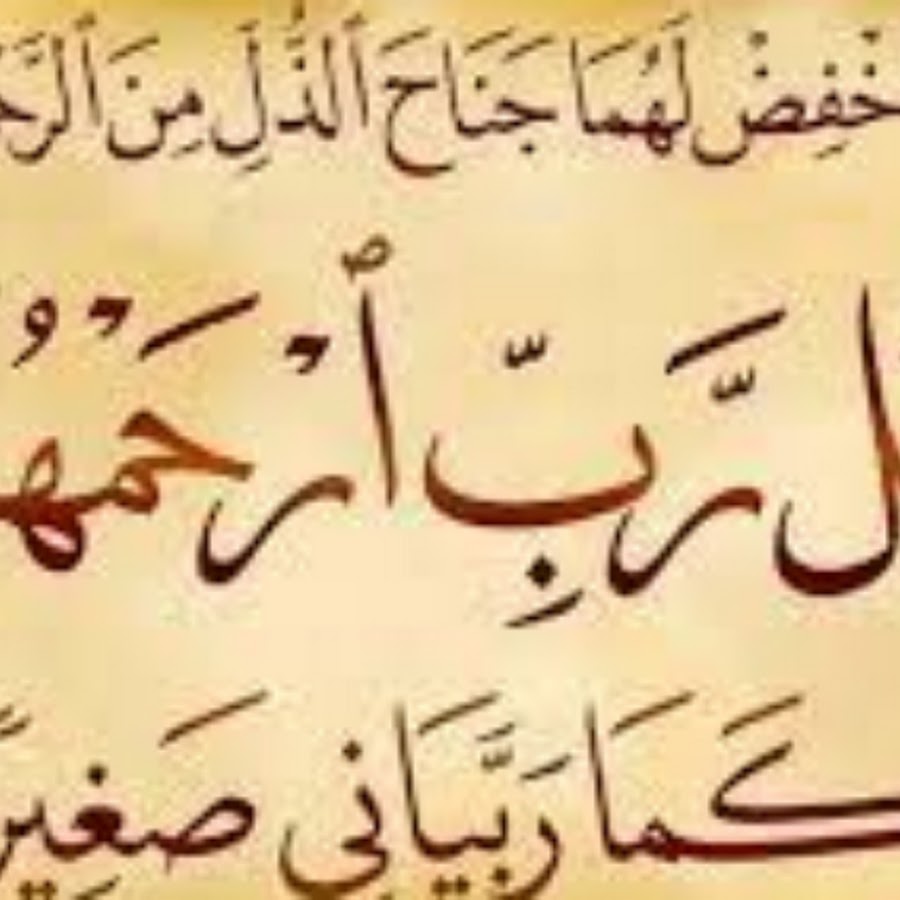 خْفِضْ لَهُمَا جَنَاحَ ٱلذُّلِّ مِنَ ٱلرَّحْ
ل رَّبِّ ٱرْحَمْهُ
كَمَا رَبَّيَانِي صَغِيرً